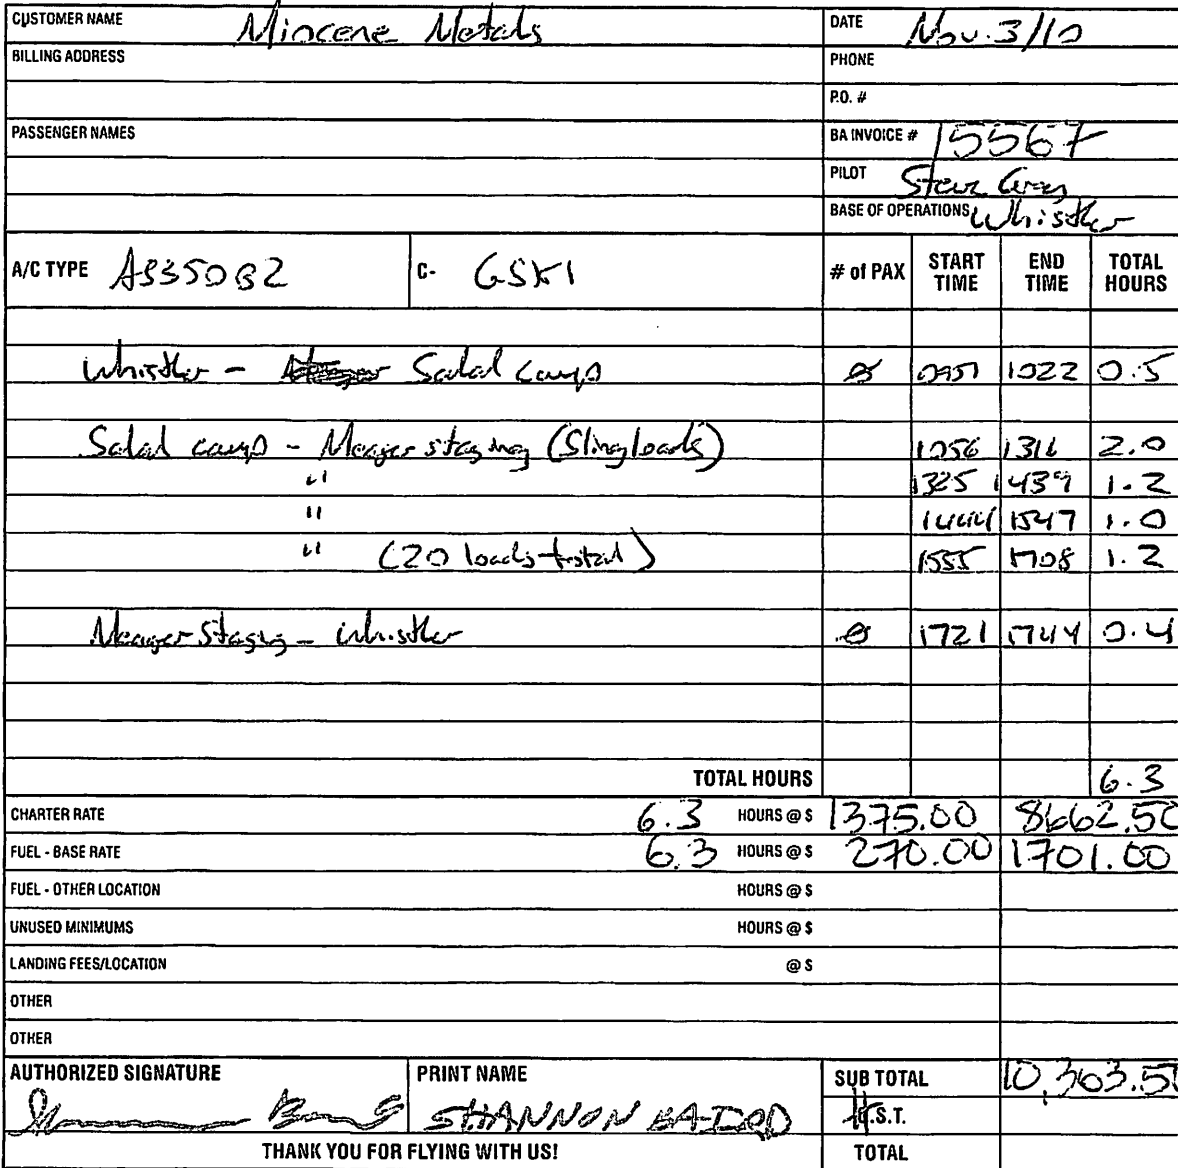 CUSTOMER NAME Miocene Metals DATE Nov. 3/10
BILLING ADDRESS PHONE
P.O. #
PASSENGER NAMES BA INVOICE # 15567
PILOT Steve Gray
BASE OF OPERATIONS Whistler
A/C TYPE AS350B2 C- GSKI # of PAX START TIME END TIME TOTAL HOURS
Whistler - Salal camp Ø 0951 1022 0.5
Salal camp - Meager staging (Sling loads) 1056 1316 2.0
" 1325 1439 1.2
" 1444 1547 1.0
" (20 loads total) 1555 1708 1.2
Meager Staging - Whistler Ø 1721 1744 0.4
TOTAL HOURS 6.3
CHARTER RATE 6.3 HOURS @ $ 1375.00 8662.50
FUEL - BASE RATE 6.3 HOURS @ $ 270.00 1701.00
FUEL - OTHER LOCATION HOURS @ $
UNUSED MINIMUMS HOURS @ $
LANDING FEES/LOCATION @ $
OTHER
OTHER
AUTHORIZED SIGNATURE PRINT NAME SUB TOTAL 10,363.50
SHANNON BAIRD H.S.T.
THANK YOU FOR FLYING WITH US! TOTAL